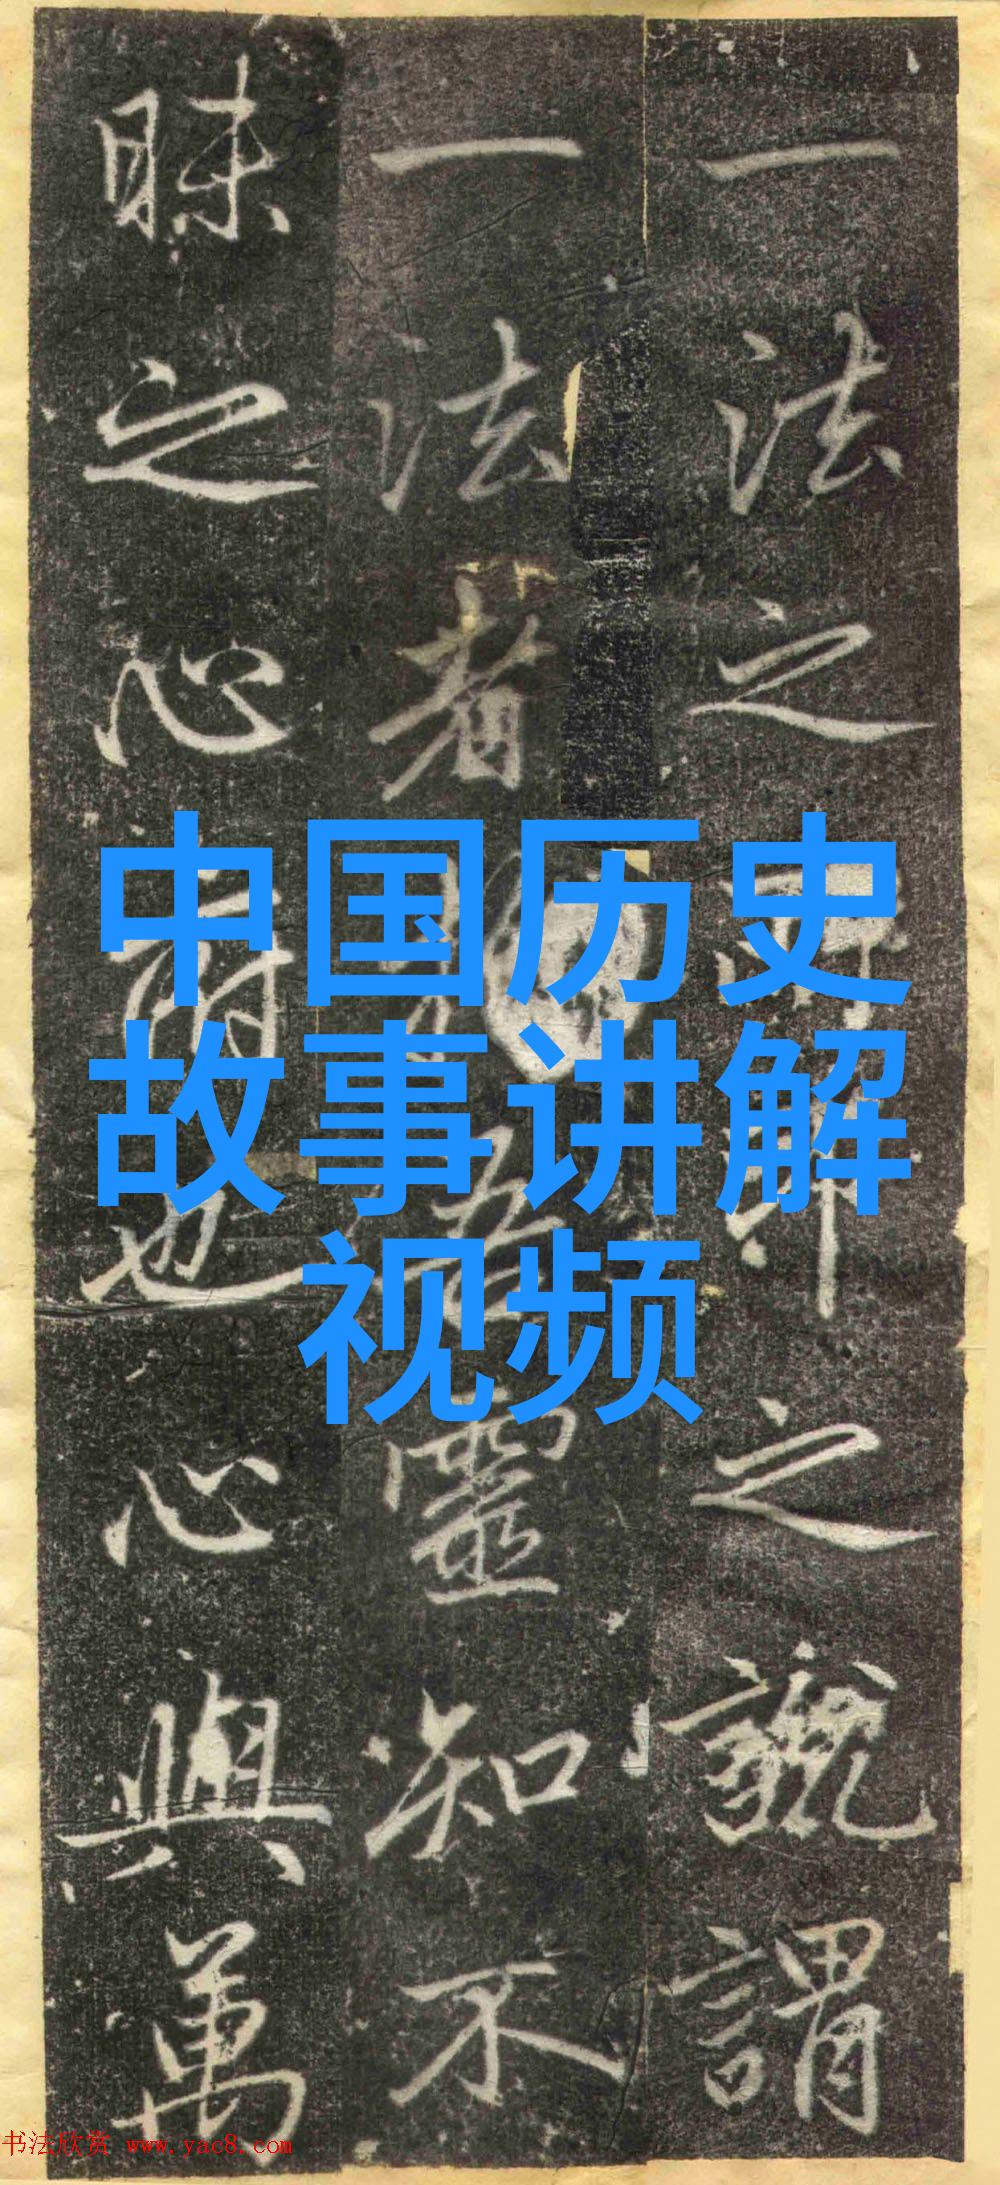 一法之之謂
一法者靈知不
昧之心也心與萬
中国历史
故事讲解
视频
书法欣赏 www.yac8.com